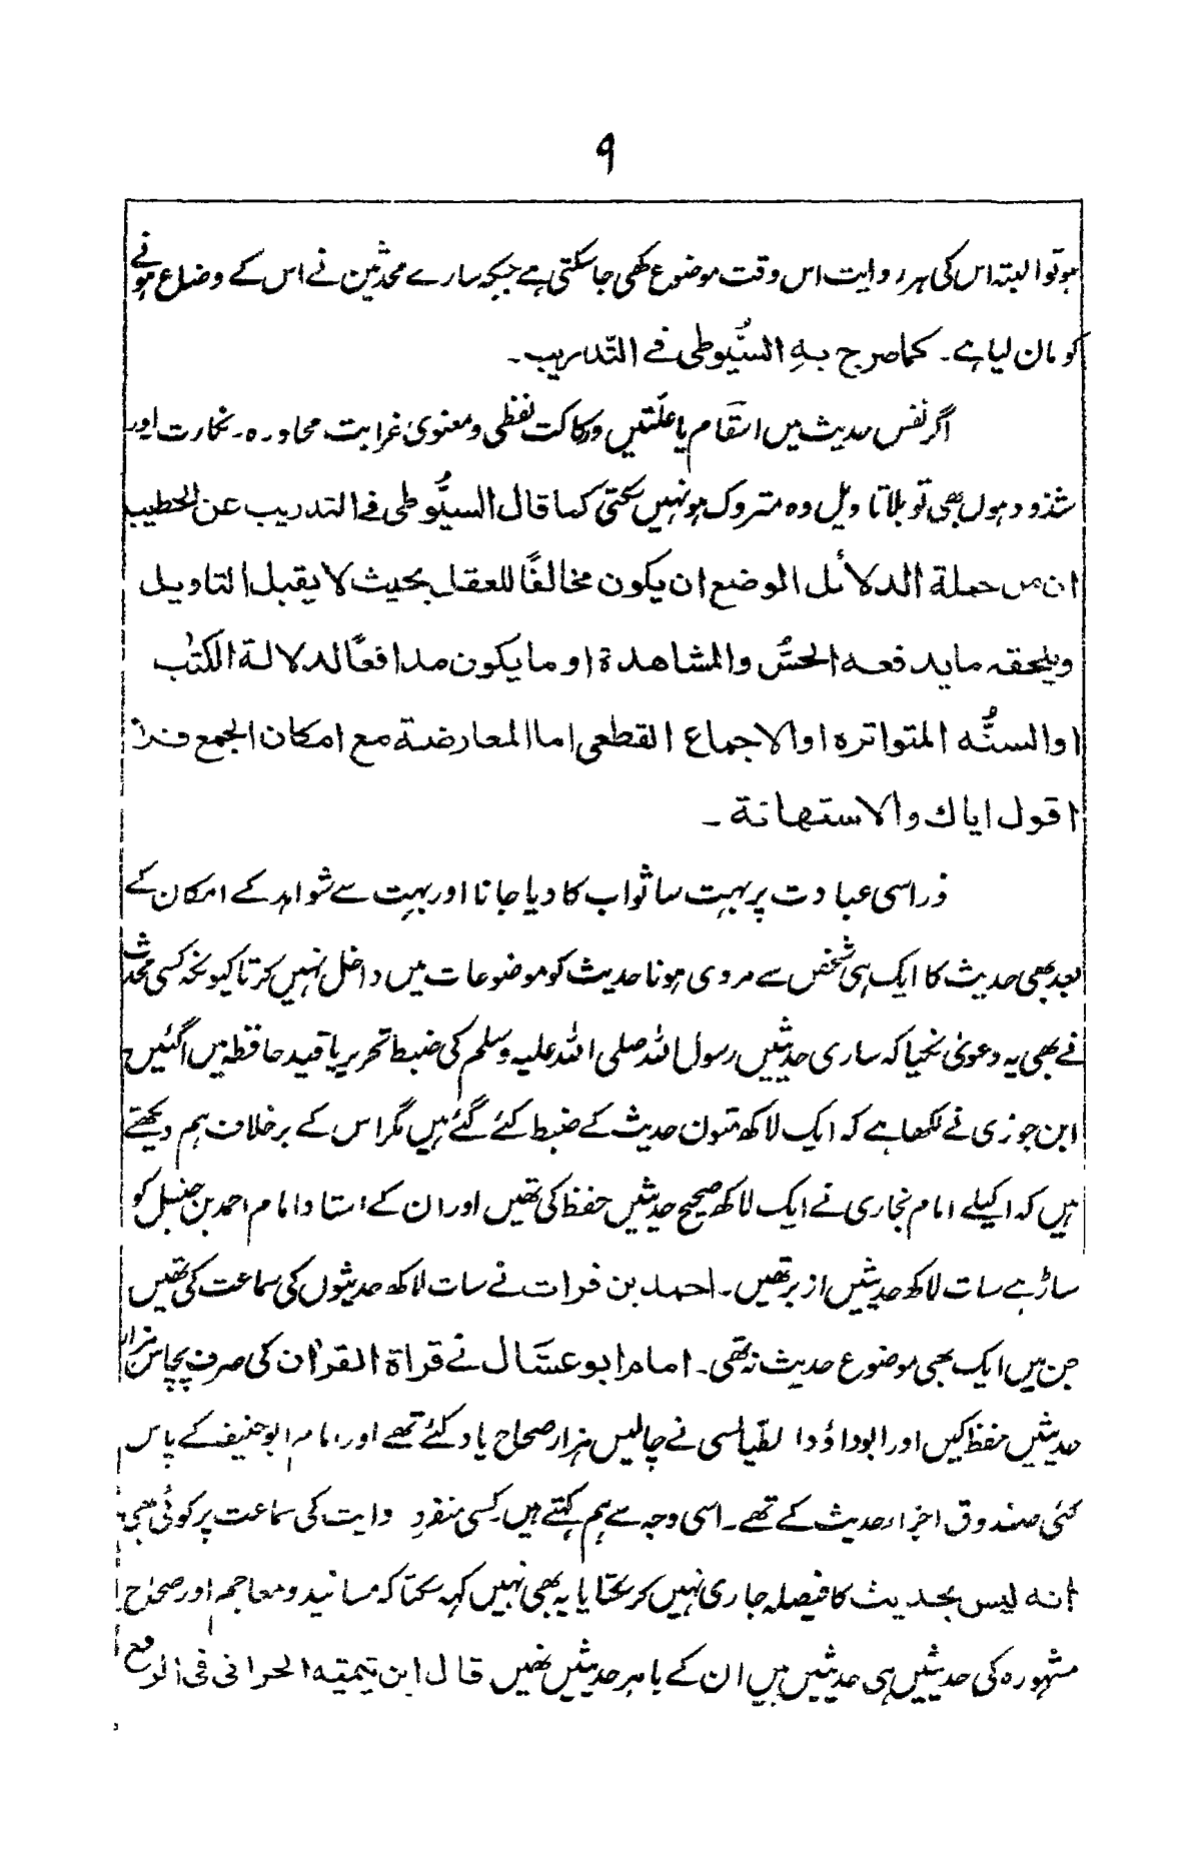 ۹
ہو تو البتہ اس کی ہر روایت اس وقت موضوع کہی جا سکتی ہے جبکہ سارے محدثین نے اس کے وضاع ہونے
کو مان لیا ہے۔ کما صرح بہِ السُّیوطی فے التّدریب۔
اگر نفس حدیث میں اسقام یا علّتیں ورکاکت لفظی و معنوی غرابت محاورہ۔ نکارت اور
شذوذ ہوں بھی تو بلا تاویل وہ متروک ہو نہیں سکتی کما قال السیُّوطی فے التدریب عن الخطیب
ان من جملة الدلائل الوضع ان یکون مخالفًا للعقل بحیث لا یقبل التاویل
ویلحقہ ما ید فعہ الحسُّ والمشاهدة او ما یکون مدافعًا لدلالة الکتٰب
اوالسنُّہ المتواترہ اوالاجماع القطعی اماالمعارضة مع امکان الجمع فلا
اقول ایاك والاستهانة۔
ذراسی عبادت پر بہت سا ثواب کا دیا جانا اور بہت سے شواہد کے امکان کے
بعد بھی حدیث کا ایک ہی شخص سے مروی ہونا حدیث کو موضوعات میں داخل نہیں کرتا کیونکہ کسی محدث
نے بھی یہ دعویٰ نکیا کہ ساری حدیثیں رسول اللہ صلی اللہ علیہ وسلم کی ضبط تحریر یا قید حافظہ میں آگئیں
ابن جوزی نے لکھا ہے کہ ایک لاکھ متون حدیث کے ضبط کئے گئے ہیں مگر اس کے برخلاف ہم دیکھتے
ہیں کہ اکیلے امام بخاری نے ایک لاکھ صحیح حدیثیں حفظ کی تھیں اور ان کے استاد امام احمد بن حنبل کو
ساڑہے سات لاکھ حدیثیں ازبر تھیں۔ احمد بن فرات نے سات لاکھ حدیثوں کی سماعت کی تھیں
جن میں ایک بھی موضوع حدیث نہ تھی۔ امام ابو عسَّال نے قراة القرآن کی صرف پچاس ہزار
حدیثیں حفظ کیں اور ابوداؤد الطیالسی نے چالیس ہزار صحاح یاد کئے تھے اور امام ابوحنیفہ کے پاس
کئی صندوق اجزاء حدیث کے تھے۔ اسی وجہ سے ہم کہتے ہیں کسی منفرد روایت کی سماعت پر کوئی بھی
انہ لیس بحدیث کا فیصلہ جاری نہیں کر سکتا یا یہ بھی نہیں کہہ سکتا کہ مسانید و معاجم اور صحاح
مشہورہ کی حدیثیں ہی حدیثیں ہیں ان کے باہر حدیثیں نہیں قال ابن تیمیہ الحرانی فی الرفع